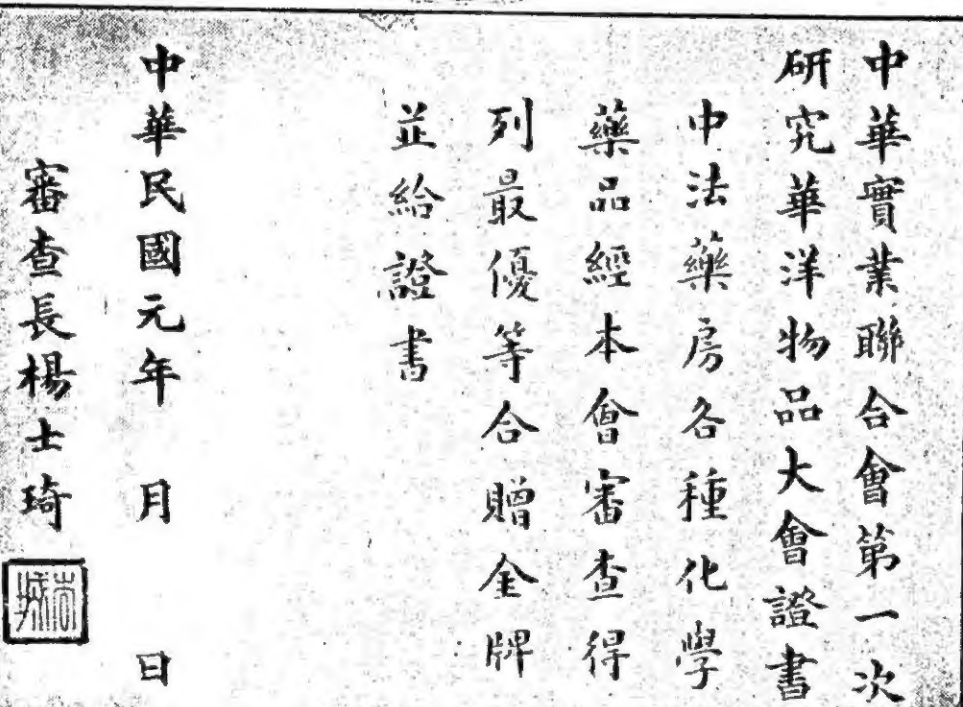 中華實業聯合會第一次
研究華洋物品大會證書
中法藥房各種化學
藥品經本會審查得
列最優等合贈金牌
並給證書
中華民國元年　月　日
審查長楊士琦